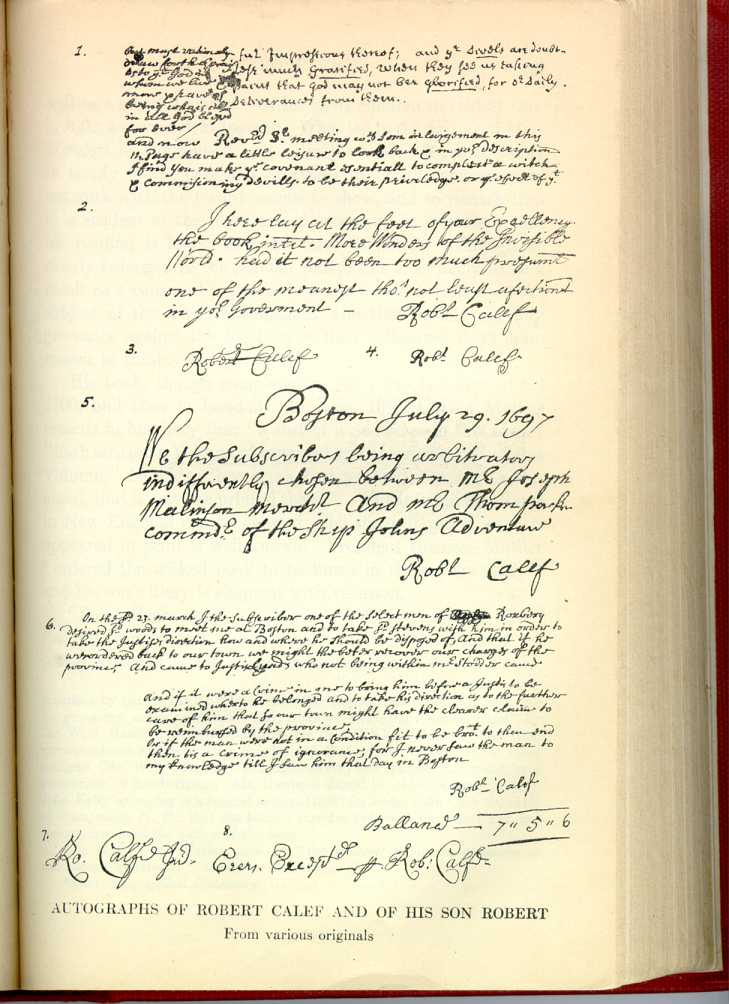 1.
but most rationaly ful Impressions thereof; and yt Divels are doubt-
draw forth
less much gratified, when they see us taking
whom we live paint that god may not bee glorified, for or Daily.
more
being Deliverances from them.
in all God blessed
for Ever
and now Revd Sr. meeting wth som inlargement in this
11. Page have a little leisure to look back & in yor description
I find you make ye covenant essentiall to compleat a witch
& commisioning devills to be their priveledge. or ye efect of yt
2.
I here lay at the feet of your Excellency
the book intit. More Wonders of the Invisible
World. had it not been too much presumt
one of the meanest tho' not least afectionat
in yor Goverment – Robt Calef
3. Robert Calef 4. Robt Calef.
5.
Boston July 29. 1697
We the Subscribers being arbitrators
indifferently chosen between Mr Joseph
Malinson Merchtt And Mr Thom parker
commdr of the Ship Johns Adventure
Robt Calef
6. On the 23. march I the subscriber one of the select men of Roxbery
desired Jo. woods to meet me at Boston and to take Jo. Stevens with him in order to
take the Justises direction how and where he should be disposed of, And that if he
werordered back to our town we might the beter recover our charges of the
province, And came to Justis who not being within mr Stodder came
And if it were a crime in me to bring him before a Justis to be
examined wherto he belonged and to take his direction as to the further
care of him that so our town might have the clearer claime to
be reimbursed by the province,
Or if the man were not in a Condition fit to be brot. to then and
then tis a crime of ignorance, for I never saw the man to
my knowledge till I saw him that day in Boston
Robt Calef
Ballance — 7 " 5 " 6
7. Ro. Calfe Jnr. 8. Errers Exceptd pr Rob: Calfe
AUTOGRAPHS OF ROBERT CALEF AND OF HIS SON ROBERT
From various originals